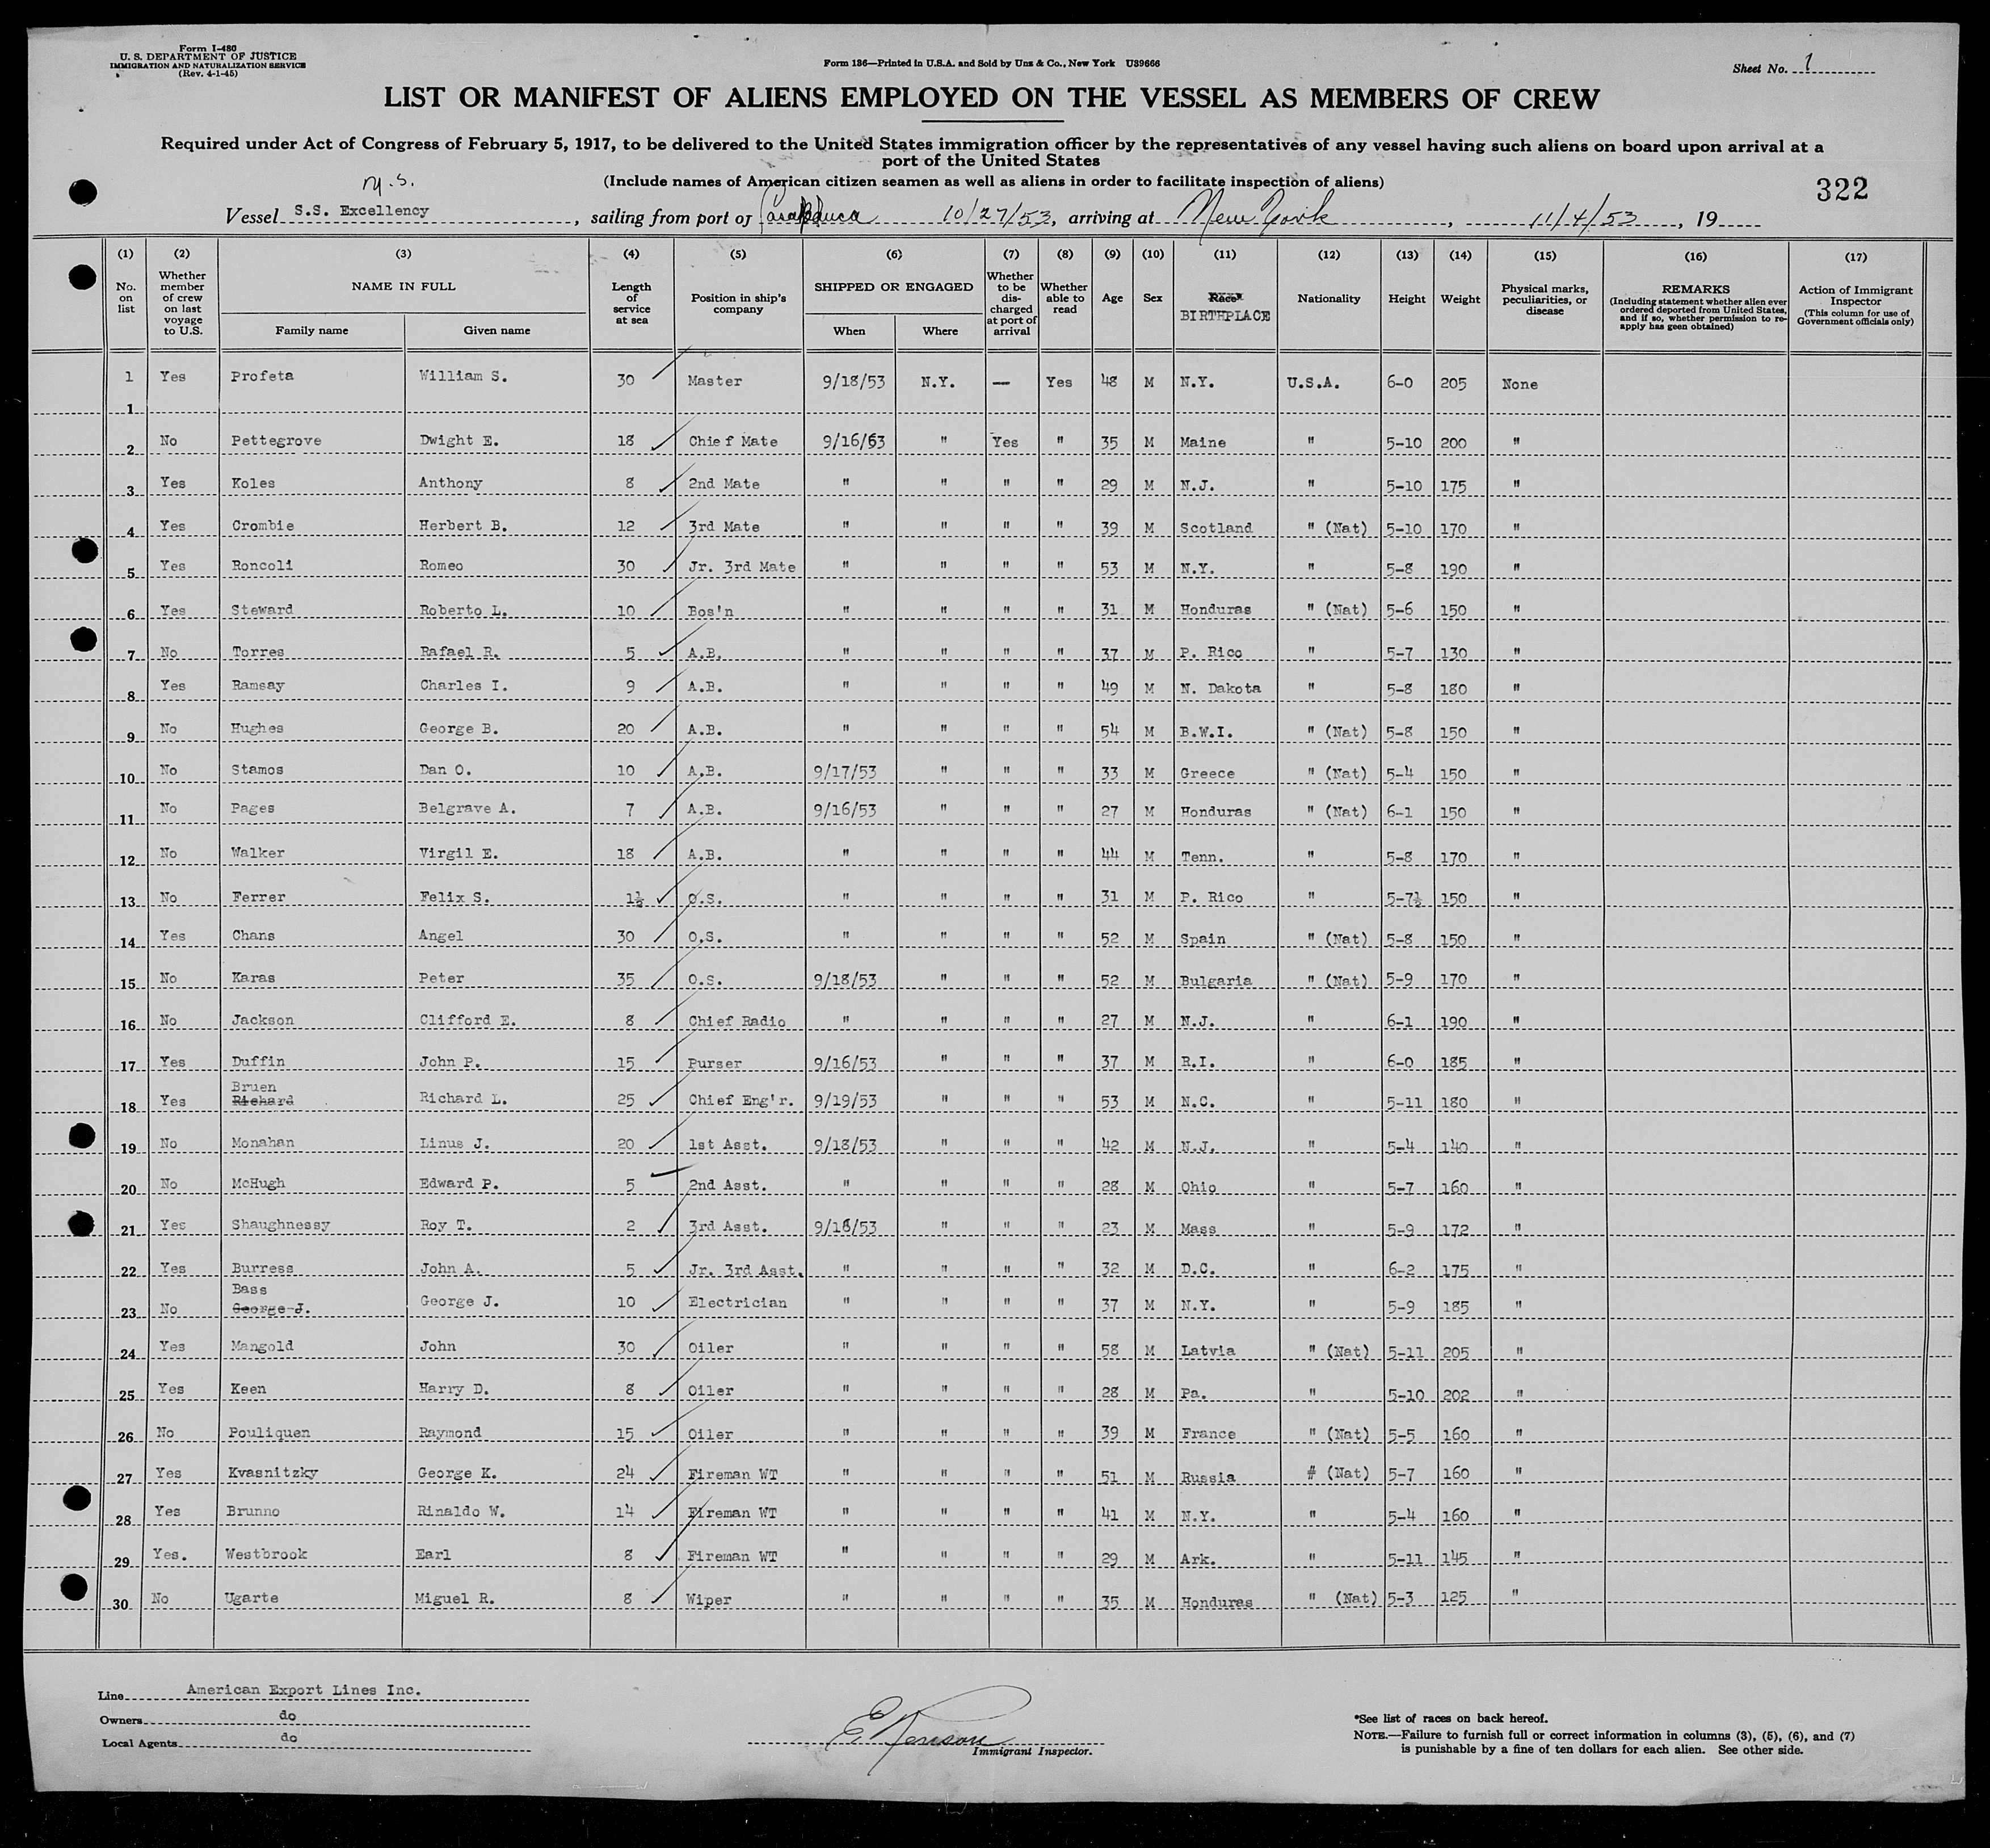 Form I-480
U. S. DEPARTMENT OF JUSTICE
IMMIGRATION AND NATURALIZATION SERVICE
(Rev. 4-1-45)
Form 186—Printed in U.S.A. and Sold by Unz & Co., New York U39666
Sheet No. 1
LIST OR MANIFEST OF ALIENS EMPLOYED ON THE VESSEL AS MEMBERS OF CREW
Required under Act of Congress of February 5, 1917, to be delivered to the United States immigration officer by the representatives of any vessel having such aliens on board upon arrival at a
port of the United States
(Include names of American citizen seamen as well as aliens in order to facilitate inspection of aliens)
322
Vessel S.S. Excellency, sailing from port of 10/27/53, arriving at New York, 11/4/53, 19
(1) No. on list
(2) Whether member of crew on last voyage to U.S.
(3) NAME IN FULL Family name Given name
(4) Length of service at sea
(5) Position in ship's company
(6) SHIPPED OR ENGAGED When Where
(7) Whether to be discharged at port of arrival
(8) Whether able to read
(9) Age
(10) Sex
(11) Race BIRTHPLACE
(12) Nationality
(13) Height
(14) Weight
(15) Physical marks, peculiarities, or disease
(16) REMARKS (Including statement whether alien ever ordered deported from United States, and if so, whether permission to re-apply has geen obtained)
(17) Action of Immigrant Inspector (This column for use of Government officials only)
1 Yes Profeta William S. 30 Master 9/18/53 N.Y. — Yes 48 M N.Y. U.S.A. 6-0 205 None
1
2 No Pettegrove Dwight E. 18 Chief Mate 9/16/53 " Yes " 35 M Maine " 5-10 200 "
3 Yes Koles Anthony 8 2nd Mate " " " " 29 M N.J. " 5-10 175 "
4 Yes Crombie Herbert B. 12 3rd Mate " " " " 39 M Scotland " (Nat) 5-10 170 "
5 Yes Roncoli Romeo 30 Jr. 3rd Mate " " " " 53 M N.Y. " 5-8 190 "
6 Yes Steward Roberto L. 10 Bos'n " " " " 31 M Honduras " (Nat) 5-6 150 "
7 No Torres Rafael R. 5 A.B. " " " " 37 M P. Rico " 5-7 130 "
8 Yes Ramsay Charles I. 9 A.B. " " " " 49 M N. Dakota " 5-8 180 "
9 No Hughes George B. 20 A.B. " " " " 54 M B.W.I. " (Nat) 5-8 150 "
10 No Stamos Dan O. 10 A.B. 9/17/53 " " " 33 M Greece " (Nat) 5-4 150 "
11 No Pages Belgrave A. 7 A.B. 9/16/53 " " " 27 M Honduras " (Nat) 6-1 150 "
12 No Walker Virgil E. 18 A.B. " " " " 44 M Tenn. " 5-8 170 "
13 No Ferrer Felix S. 1½ O.S. " " " " 31 M P. Rico " 5-7½ 150 "
14 Yes Chans Angel 30 O.S. " " " " 52 M Spain " (Nat) 5-8 150 "
15 No Karas Peter 35 O.S. 9/18/53 " " " 52 M Bulgaria " (Nat) 5-9 170 "
16 No Jackson Clifford E. 8 Chief Radio " " " " 27 M N.J. " 6-1 190 "
17 Yes Duffin John P. 15 Purser 9/16/53 " " " 37 M R.I. " 6-0 185 "
18 Yes Bruen Richard Richard L. 25 Chief Eng'r. 9/19/53 " " " 53 M N.C. " 5-11 180 "
19 No Monahan Linus J. 20 1st Asst. 9/18/53 " " " 42 M N.J. " 5-4 140 "
20 No McHugh Edward P. 5 2nd Asst. " " " " 28 M Ohio " 5-7 160 "
21 Yes Shaughnessy Roy T. 2 3rd Asst. 9/16/53 " " " 23 M Mass " 5-9 172 "
22 Yes Burress John A. 5 Jr. 3rd Asst. " " " " 32 M D.C. " 6-2 175 "
23 No Bass George J. George J. 10 Electrician " " " " 37 M N.Y. " 5-9 185 "
24 Yes Mangold John 30 Oiler " " " " 58 M Latvia " (Nat) 5-11 205 "
25 Yes Keen Harry D. 8 Oiler " " " " 28 M Pa. " 5-10 202 "
26 No Pouliquen Raymond 15 Oiler " " " " 39 M France " (Nat) 5-5 160 "
27 Yes Kvasnitzky George K. 24 Fireman WT " " " " 51 M Russia # (Nat) 5-7 160 "
28 Yes Brunno Rinaldo W. 14 Fireman WT " " " " 41 M N.Y. " 5-4 160 "
29 Yes. Westbrook Earl 8 Fireman WT " " " " 29 M Ark. " 5-11 145 "
30 No Ugarte Miguel R. 8 Wiper " " " " 35 M Honduras " (Nat) 5-3 125 "
Line American Export Lines Inc.
Owners do
Local Agents do
Immigrant Inspector.
*See list of races on back hereof.
NOTE.—Failure to furnish full or correct information in columns (3), (5), (6), and (7)
is punishable by a fine of ten dollars for each alien. See other side.